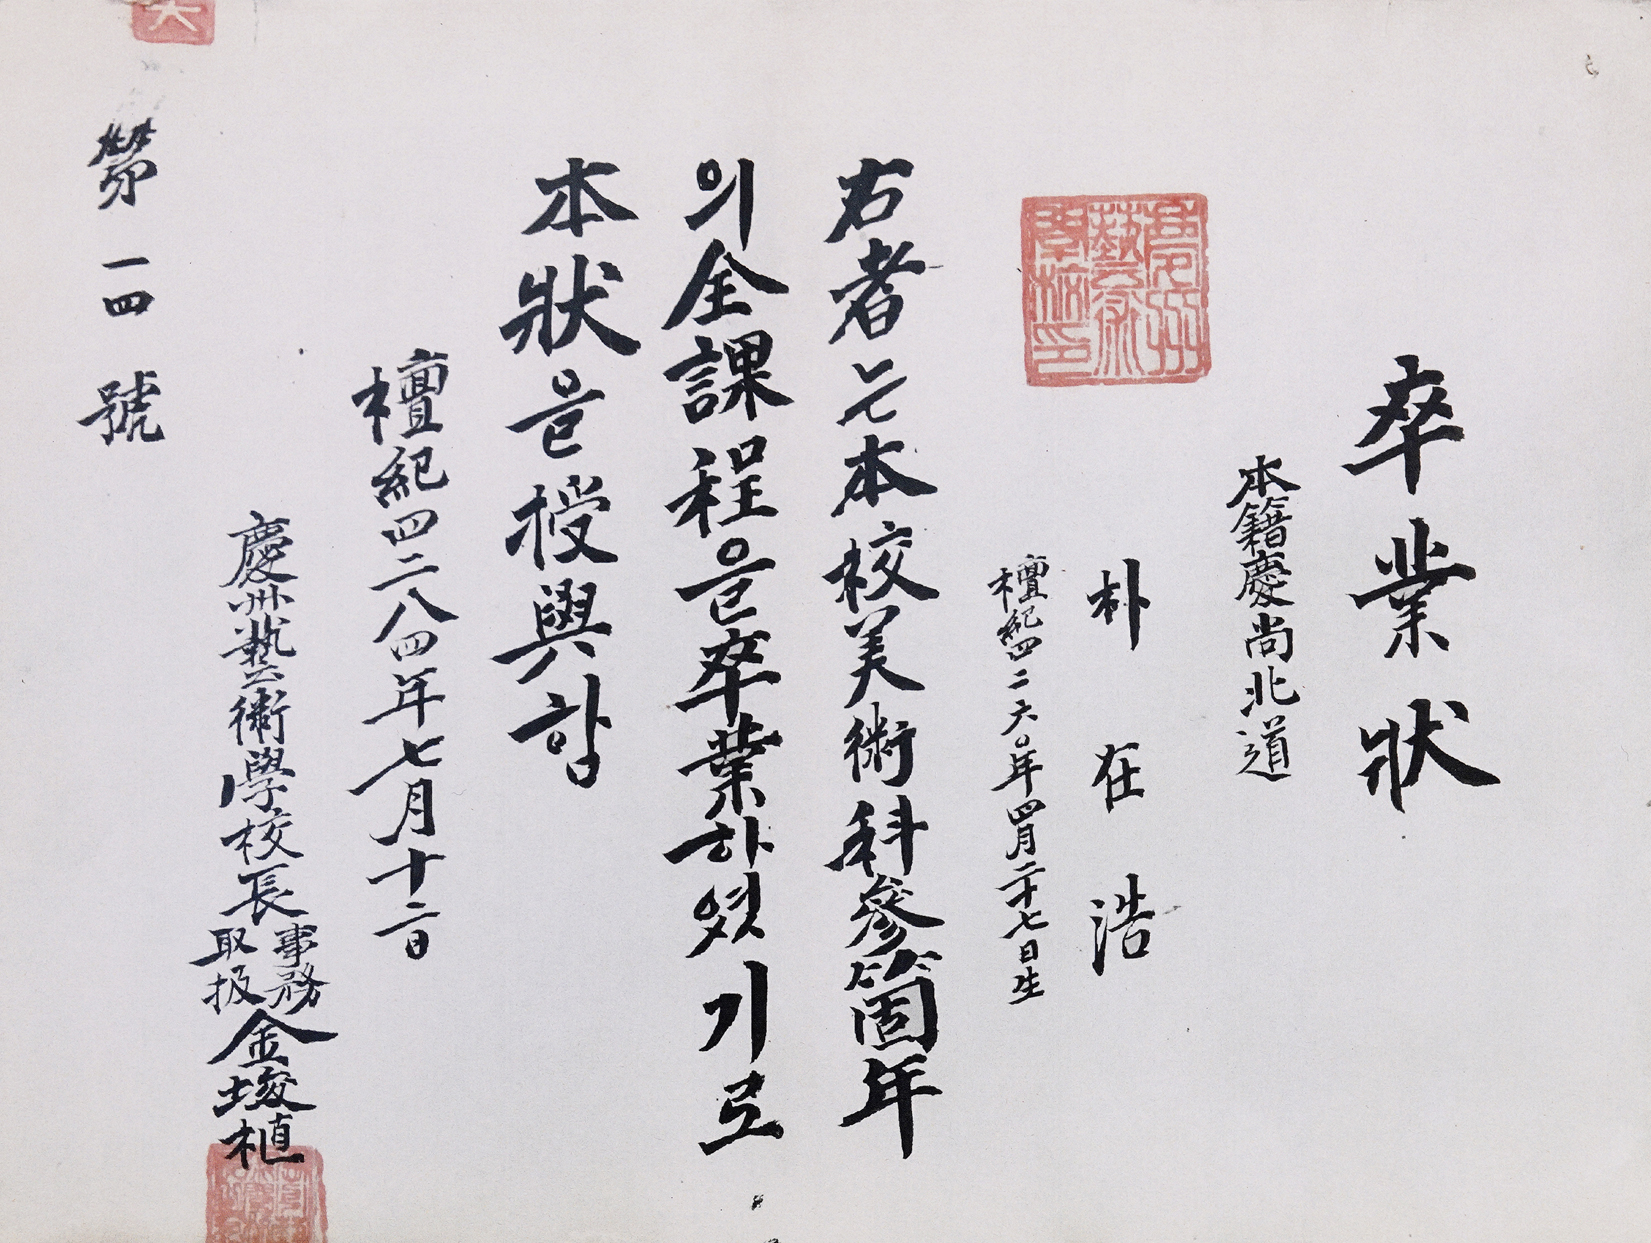 卒業狀
本籍慶尚北道
朴在浩
檀紀四二六〇年四月二十七日生
慶州藝術學校印
右者는本校美術科參箇年
의全課程을卒業하엿기로
本狀을授與함
檀紀四二八四年七月十二日
慶州藝術學校長事務取扱金埈植
第一四號